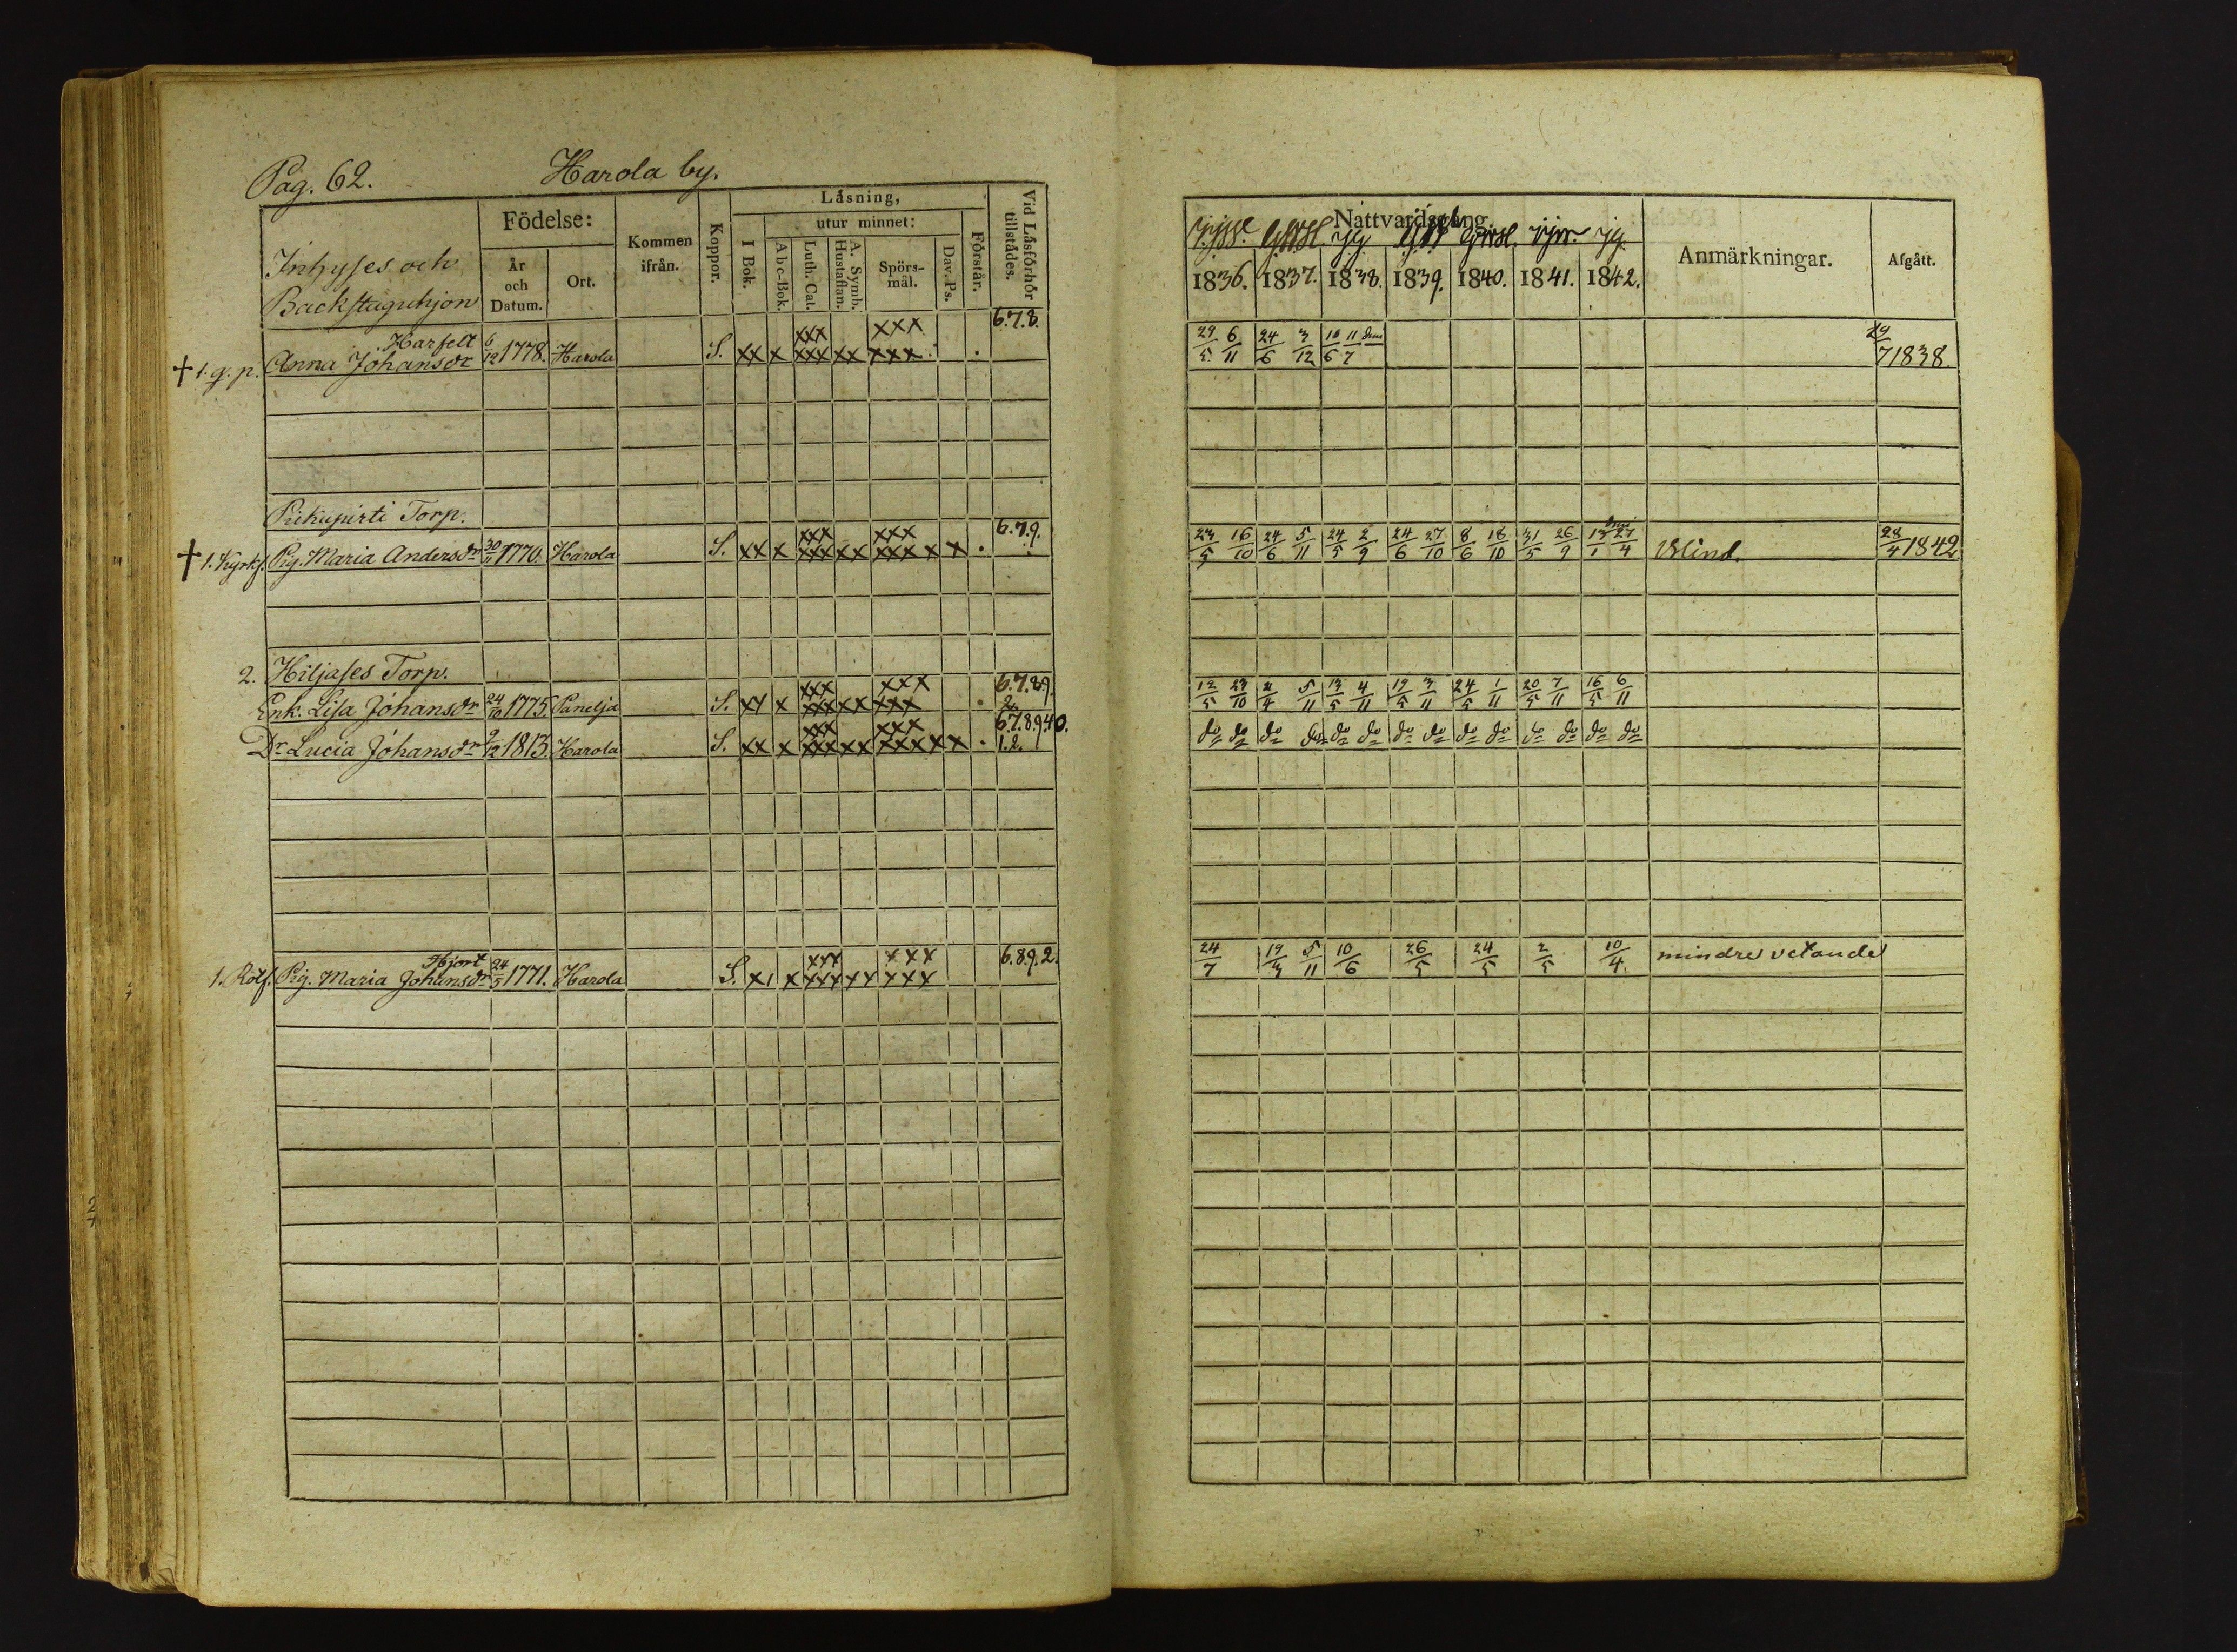 Pag. 62. Harola by.
Inhyses och
Backstuguhjon
Födelse:
År
och
Datum.
Ort.
Kommen
ifrån.
Koppor.
Läsning,
I Bok.
utur minnet:
Abc-Bok
Luth. Cat.
A. Symb.
Hustaflan.
Spörs-
mål.
Dav. Ps.
Förstår.
Vid Läsförhör
tillstädes.
Harfelt
† 1. g. p. Anna Johansdr 6/12 1778. Harola S. xx x xxx xxx xx xxx xxx . 6.7.8.
Torp.
† 1. Kyrkf. Pig. Maria Andersdr 1770. Harola S. xx x xxx xxx xx xxx xxx x x . 6.7.9.
2. Hiljases Torp.
Enk. Lisa Johansdr 24/10 1775. Panelja S. x x xxx xxx xx xxx xxx . 6.7.8.9.
2.
Dr Lucia Johansdr 9/12 1813. Harola S. xx x xxx xxx xx xxx xxx x x . 6.7.8.9.40.
1.2.
Hjort
1. Rotf. Pig. Maria Johansdr 24/5 1771. Harola S. x x xxx xxx xx xxx xxx 6.8.9.2.
Nattvardsgång
1836. 1837. 1838. 1839. 1840. 1841. 1842.
Anmärkningar.
Afgått.
29/5 6/11 24/6 3/12 10/6 11/7 29/7 1838.
23/5 16/10 24/6 5/11 24/5 2/9 24/6 27/10 8/6 18/10 31/5 26/9 13/1 27/4 Blind. 28/4 1842
12/5 23/10 2/4 5/11 13/5 4/11 19/5 3/11 24/5 1/11 20/5 7/11 16/5 6/11
do do do do do do do do do do do do do do
24/7 19/3 5/11 10/6 26/5 24/5 2/5 10/4 mindre vetande